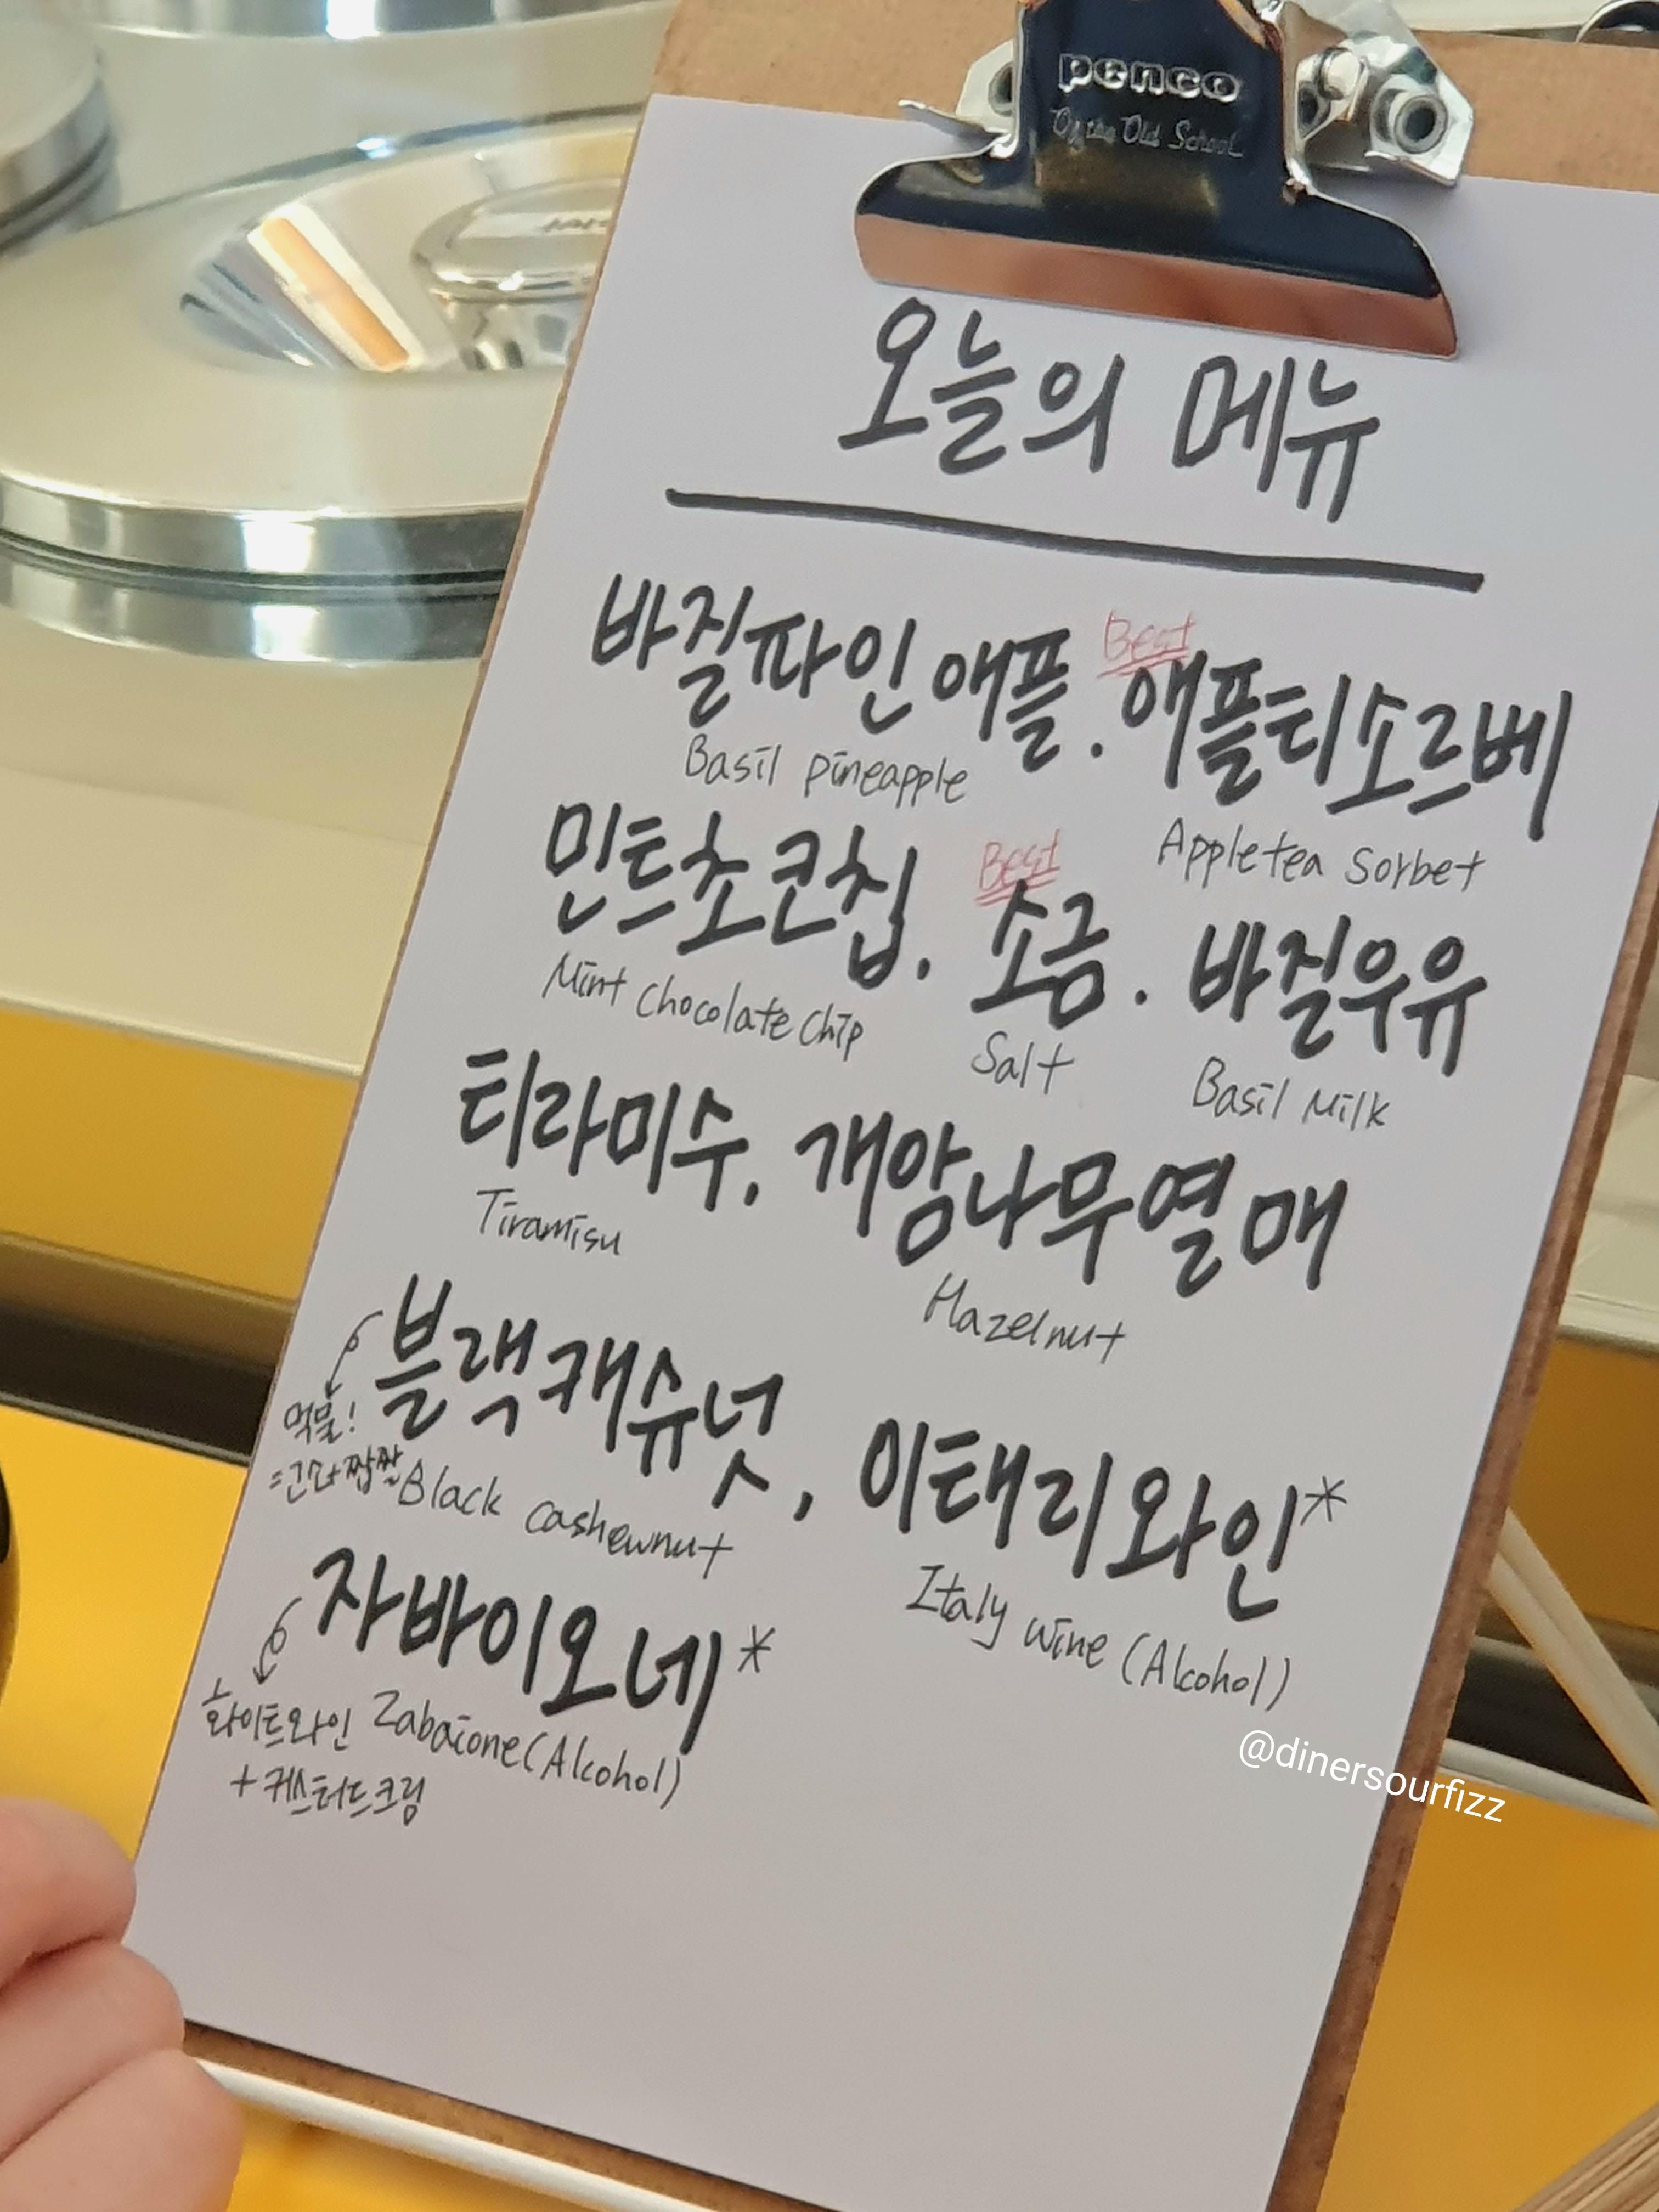 penco
Of the Old School
오늘의 메뉴
Best
바질파인애플. 애플티소르베
Basil pineapple
Appletea Sorbet
Best
민트초코칩. 소금. 바질우유
Mint chocolate chip
Salt
Basil Milk
티라미수. 개암나무열매
Tiramisu
Hazelnut
블랙캐슈넛, 이태리와인*
먹물!
=고소+짭짤
Black cashewnut
Italy wine (Alcohol)
자바이오네*
화이트와인
+커스터드크림
Zabaione (Alcohol)
@dinersourfizz